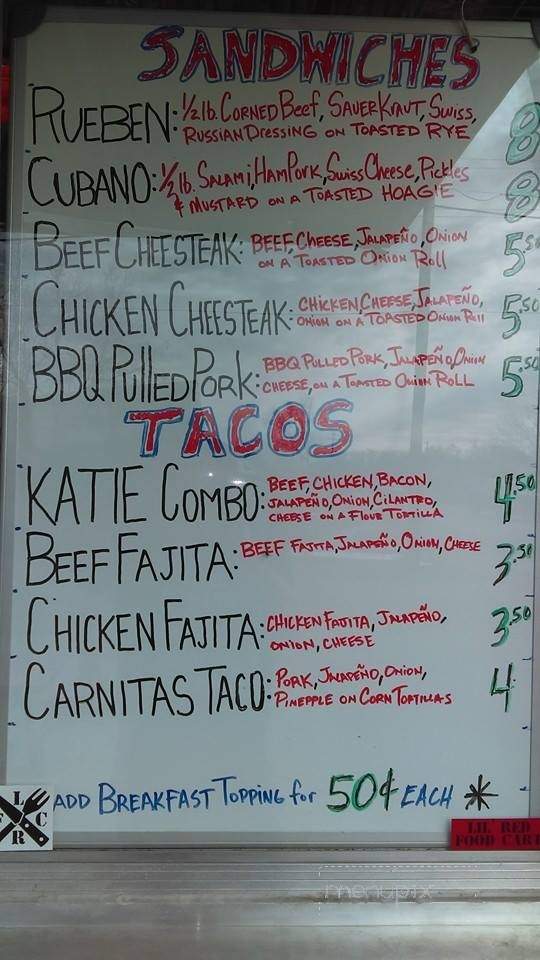 SANDWICHES
RUEBEN: 1/2 lb. CORNED Beef, SAUERKRAUT, SWISS, 8
RUSSIAN DRESSING ON TOASTED RYE
CUBANO: 1/2 lb. SALAMI, HAM PORK, SWISS CHEESE, PICKLES 8
& MUSTARD ON A TOASTED HOAGIE
BEEF CHEESTEAK: BEEF, CHEESE, JALAPEÑO, ONION 5.50
ON A TOASTED ONION Roll
CHICKEN CHEESTEAK: CHICKEN, CHEESE, JALAPEÑO, 5.50
ONION ON A TOASTED ONION Roll
BBQ PULLED PORK: BBQ PULLED PORK, JALAPEÑO, ONION 5.50
CHEESE, ON A TOASTED ONION ROLL
TACOS
KATIE COMBO: BEEF, CHICKEN, BACON, 4.50
JALAPEÑO, ONION, CILANTRO,
CHEESE ON A FLOUR TORTILLA
BEEF FAJITA: BEEF FAJITA, JALAPEÑO, ONION, CHEESE 3.50
CHICKEN FAJITA: CHICKEN FAJITA, JALAPEÑO, 3.50
ONION, CHEESE
CARNITAS TACO: PORK, JALAPEÑO, ONION, 4
PINEPPLE ON CORN TORTILLAS
ADD BREAKFAST TOPPING for 50¢ EACH *
L
F C
R
LIL' RED
FOOD CART
menupix